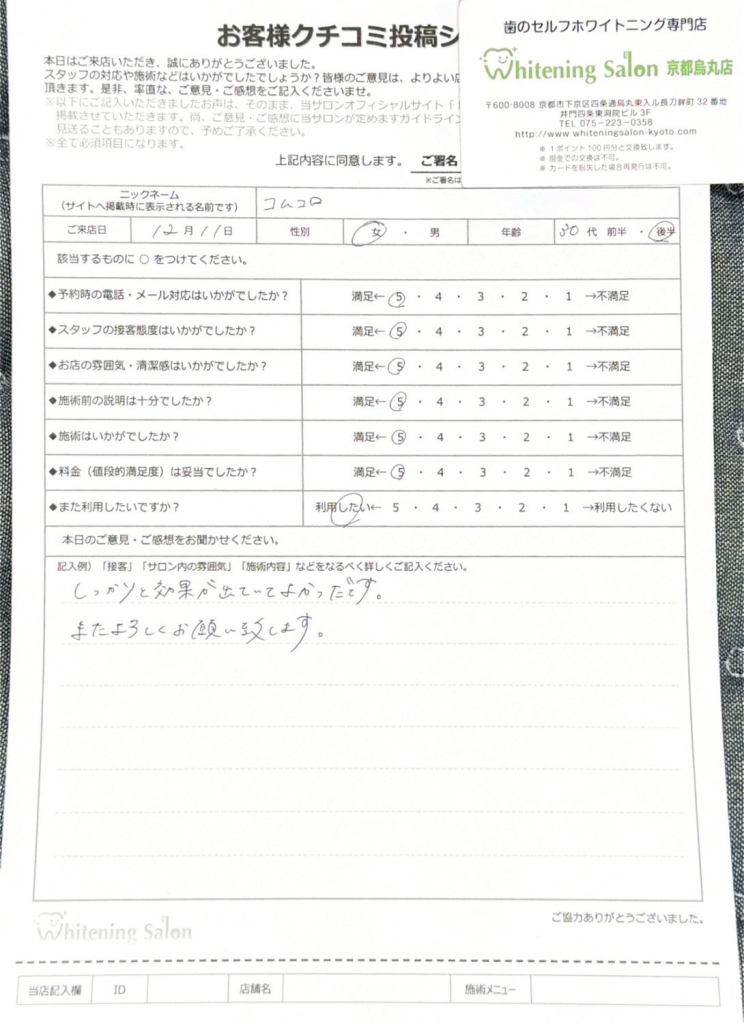 お客様クチコミ投稿シ
本日はご来店いただき、誠にありがとうございました。
スタッフの対応や施術などはいかがでしたでしょうか？皆様のご意見は、よりよい店
頂きます。是非、率直な、ご意見・ご感想をご記入くださいませ。
※以下にご記入いただきましたお声は、そのまま、当サロンオフィシャルサイト「
掲載させていただきます。尚、ご意見・ご感想に当サロンが定めますガイドライン
見送ることもありますので、予めご了承ください。
※全て必須項目になります。
上記内容に同意します。 ご署名
※ご署名は
歯のセルフホワイトニング専門店
Whitening Salon 京都烏丸店
〒600-8008 京都市下京区四条通烏丸東入ル長刀鉾町 32 番地
井門四条東洞院ビル 3F
TEL 075-223-0358
http://www.whiteningsalon-kyoto.com
※ 1ポイント100円分と交換致します。
※ 現金での交換は不可。
※ カードを紛失した場合再発行は不可。
ニックネーム
（サイトへ掲載時に表示される名前です） コムコロ
ご来店日 12月11日 性別 女 ・ 男 年齢 30代 前半 ・ 後半
該当するものに ○ をつけてください。
◆予約時の電話・メール対応はいかがでしたか？ 満足← 5 ・ 4 ・ 3 ・ 2 ・ 1 →不満足
◆スタッフの接客態度はいかがでしたか？ 満足← 5 ・ 4 ・ 3 ・ 2 ・ 1 →不満足
◆お店の雰囲気・清潔感はいかがでしたか？ 満足← 5 ・ 4 ・ 3 ・ 2 ・ 1 →不満足
◆施術前の説明は十分でしたか？ 満足← 5 ・ 4 ・ 3 ・ 2 ・ 1 →不満足
◆施術はいかがでしたか？ 満足← 5 ・ 4 ・ 3 ・ 2 ・ 1 →不満足
◆料金（値段的満足度）は妥当でしたか？ 満足← 5 ・ 4 ・ 3 ・ 2 ・ 1 →不満足
◆また利用したいですか？ 利用したい← 5 ・ 4 ・ 3 ・ 2 ・ 1 →利用したくない
本日のご意見・ご感想をお聞かせください。
記入例）「接客」「サロン内の雰囲気」「施術内容」などをなるべく詳しくご記入ください。
しっかりと効果が出ていてよかっだです。
またよろしくお願い致します。
Whitening Salon
ご協力ありがとうございました。
当店記入欄 ID 店舗名 施術メニュー